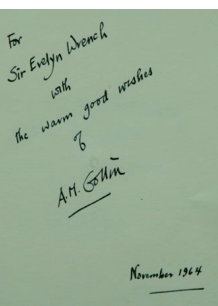 For
Sir Evelyn Wrench
with
the warm good wishes
of
A.M. Gollin
November 1964